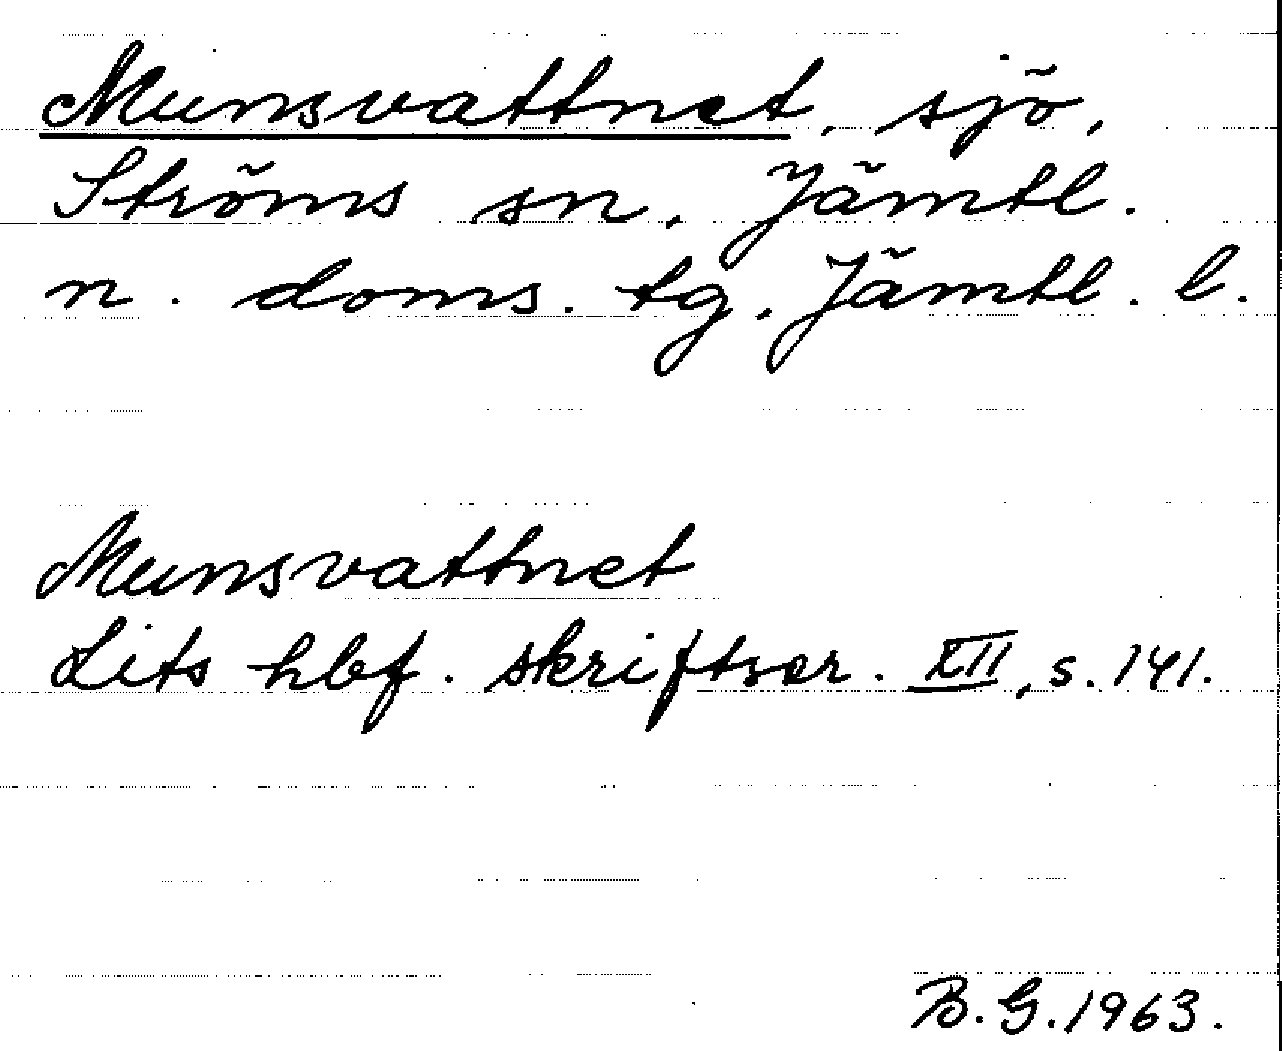 Munsvattnet, sjö,
Ströms sn, Jämtl.
n. doms. tg, Jämtl. l.
Munsvattnet
Lits hbf. skriftser. XII, s. 141.
B. G. 1963.